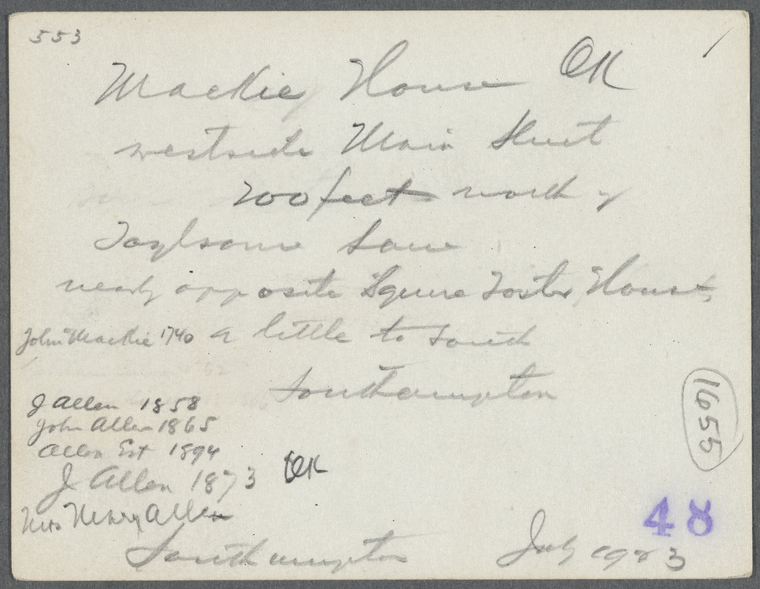 553
Mackie House OK
westside Main Street
200 feet north of
Toylsome Lane
nearly opposite Squire Foster House,
John Mackie 1740 a little to south
Southampton
J Allen 1858
John Allen 1865
Allen Est 1894
J Allen 1873 OK
Mrs Mary Allen
Southampton July 1923
1655
48